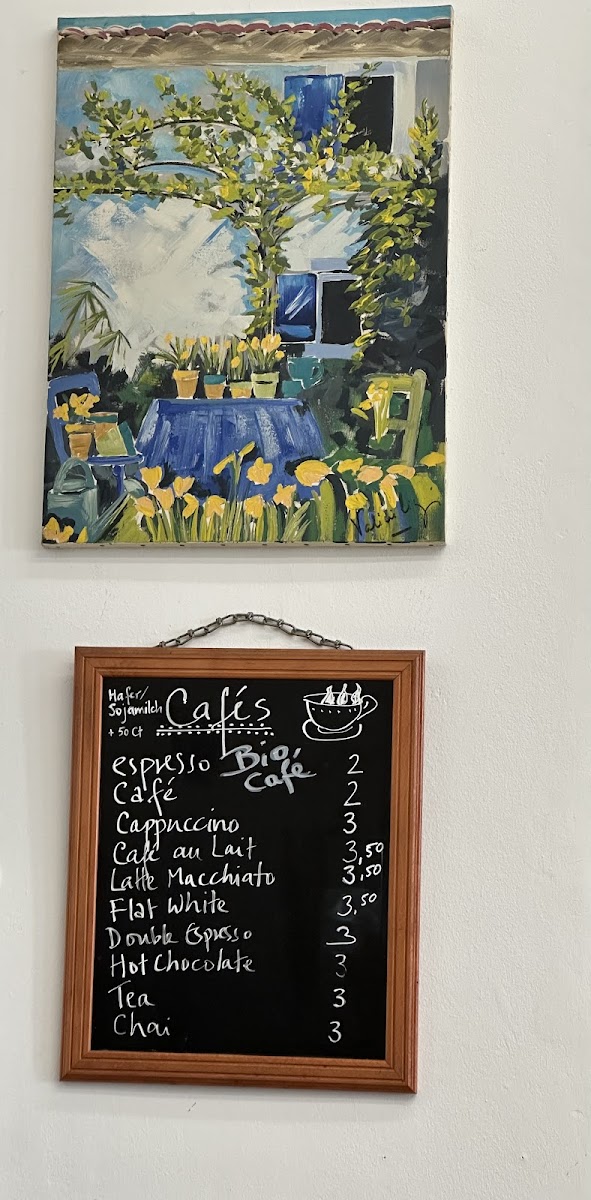 Hafer/
Sojamilch
+ 50 Ct
Cafés
Bio
Café
espresso 2
Café 2
Cappuccino 3
Café au Lait 3,50
Latte Macchiato 3,50
Flat White 3,50
Double Espresso 3
Hot Chocolate 3
Tea 3
Chai 3